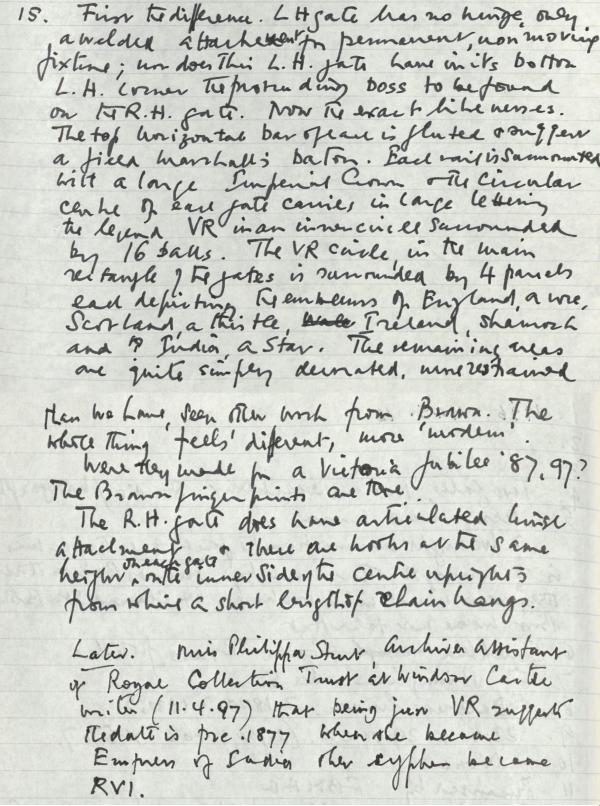 15. First the difference. L H gate has no hinge, only
a welded attachment for permanent, non moving
fixture; nor does this L.H. gate have in its bottom
L.H. corner the protruding boss to be found
on the R.H. gate. Now the exact likenesses.
The top horizontal bar of each is fluted & suggests
a field marshall's baton. Each rail is surmounted
with a large Imperial Crown & the circular
centre of each gate carries in large lettering
the legend VR in an inner circle surrounded
by 16 balls. The VR circle, in the main
rectangle of the gates is surrounded by 4 panels
each depicting the emblems of England, a rose,
Scotland, a thistle, Ireland, shamrock
and ? India, a Star. The remaining areas
are quite simply decorated, more restrained
than we have seen other work from Brawn. The
whole thing 'feels' different, more 'modern'.
Were they made for a Victoria Jubilee '87, 97?
The Brawn fingerprints are there
The R.H. gate does have articulated hinge
attachment & there are hooks at the same
height on each gate on the inner side of the centre uprights
from where a short length of chain hangs.
Later. Miss Philippa Archives Assistant
of Royal Collection Trust at Windsor Castle
writes (11.4.97) that being just VR suggests
the date is pre. 1877 when she became
Empress of India & her cypher became
RVI.